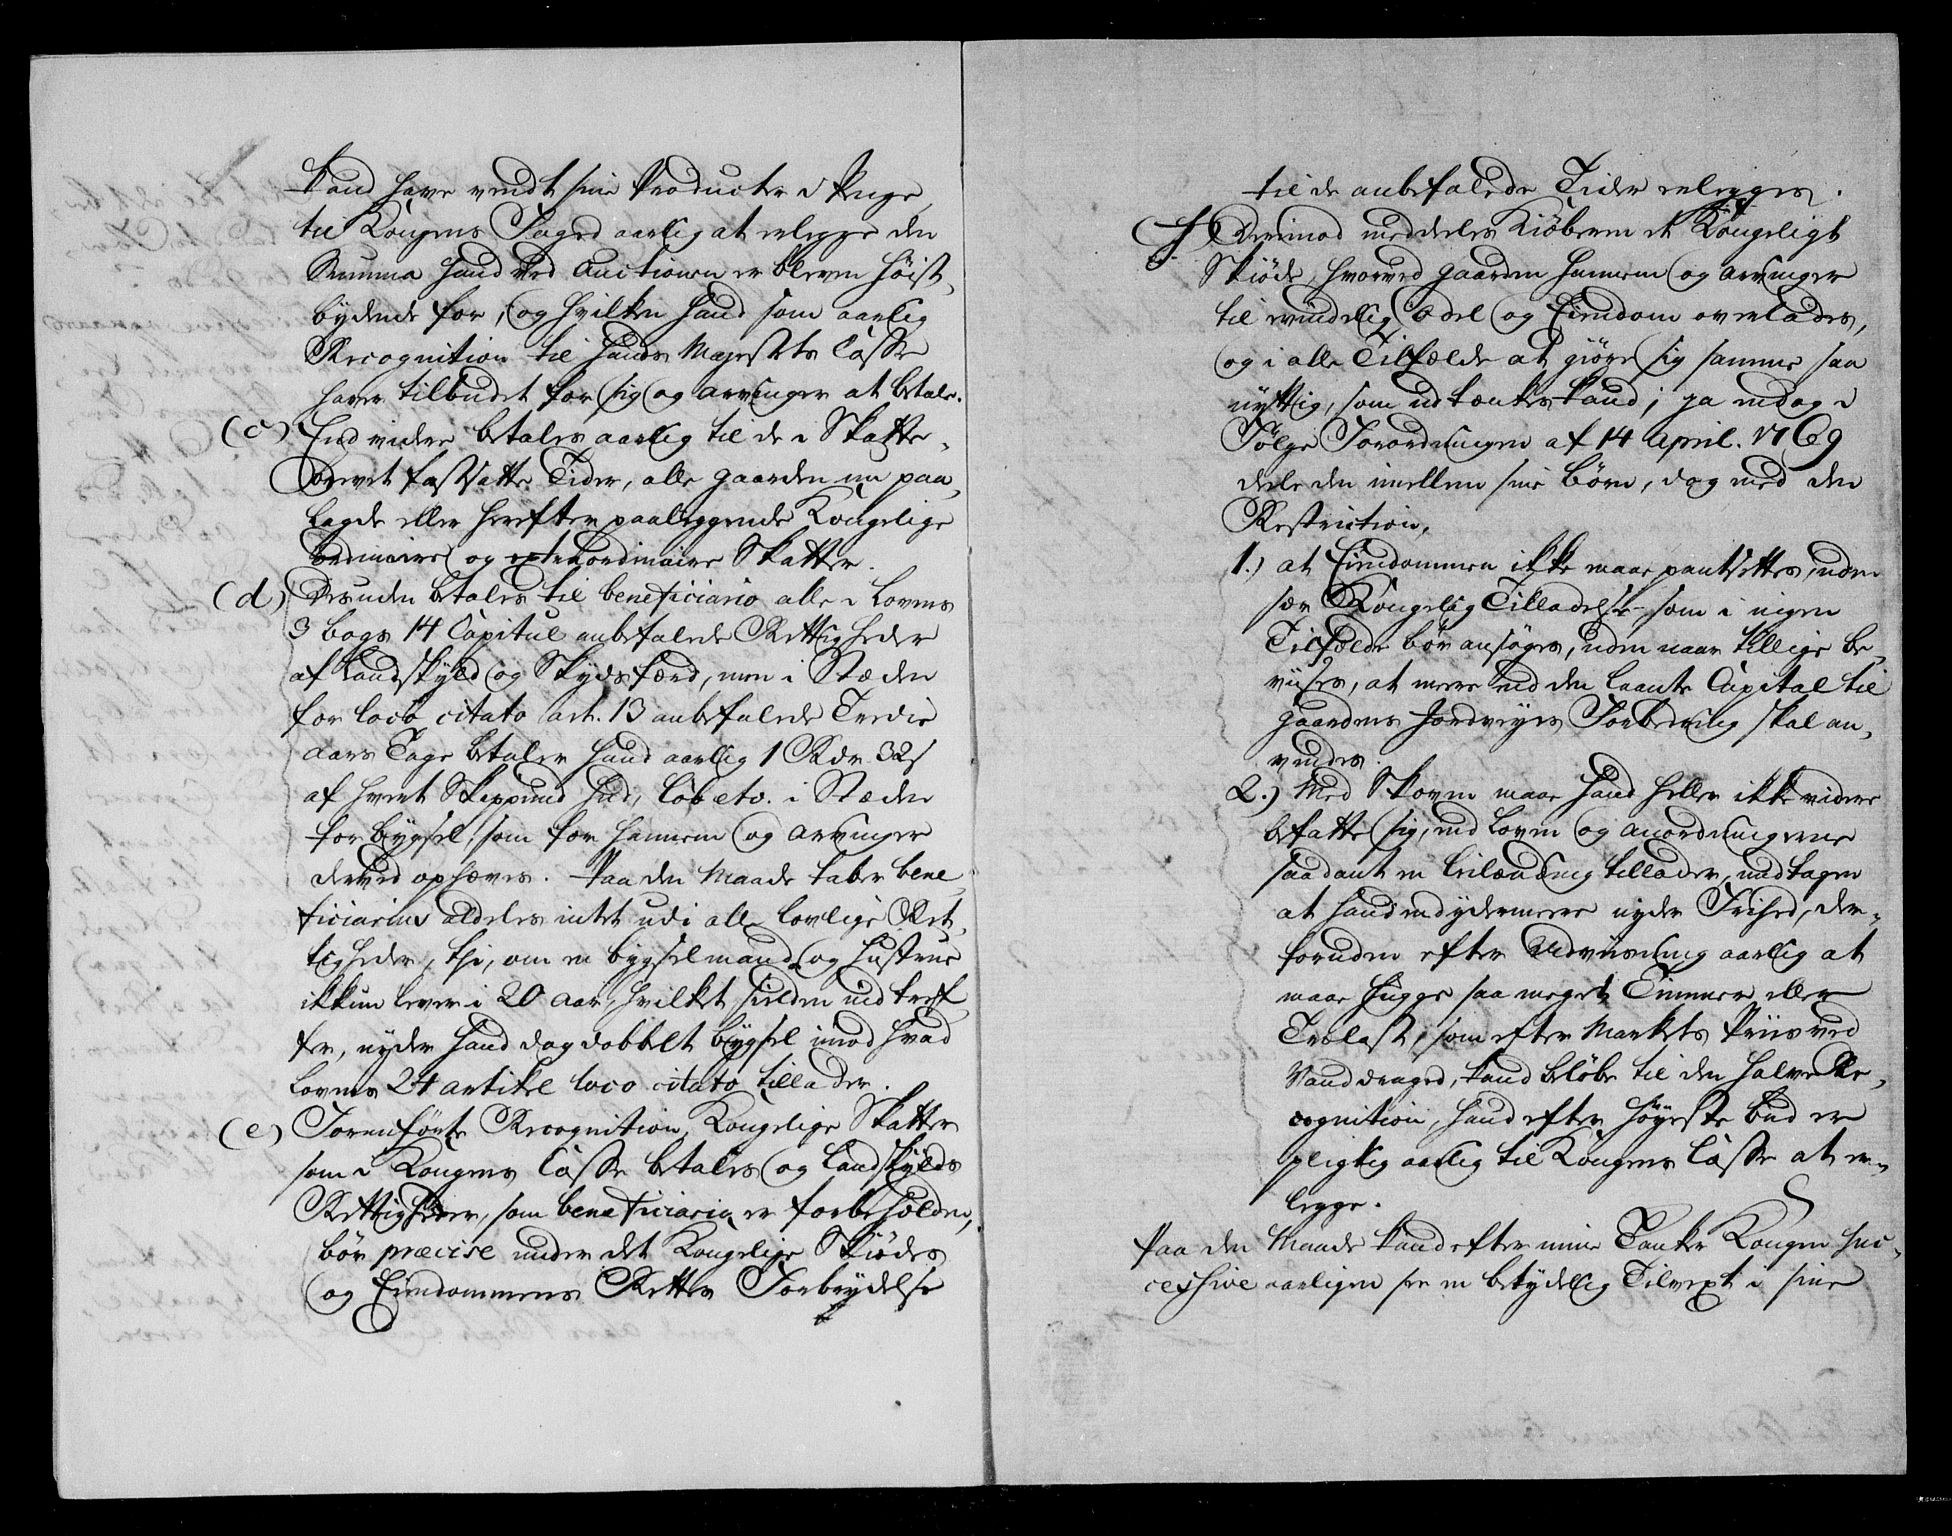 kand have vendt sine Producter i Penge,
til Kongens Foged aarlig at erlegge den
Summa hand ved Auctionen er bleven høist„
bydende for, og hvilken hand som aarlig
Recognition til Hands Majestets Casse
haver tilbudet for sig og Arvinger at betale.
(c) End videre betales aarlig til de i Skatte„
brevet fastsatte Tider, alle gaarden nu paa„
lagde eller herefter paaleggende Kongelige
ordinaire og extraordinaire Skatter.
(d) Desuden betales til beneficiario alle i Lovens
3 bogs 14 Capitul anbefalede Rettigheder
af Landskyld og Skydsferd, men i Stæden
for loco citato art. 13 anbefalede Tredie
Aars Tage betaler hand aarlig 1 Rdr. 32 s
af hvert Skeppund Hud, Løb etc. i Stæden
for bygsel, som for hannem og Arvinger
derved ophæves. Paa den Maade taber bene„
ficiarius aldeles intet udi alle lovlige Ret„
tigheder, thi, om en bygselmand og Hustrue
ikkun lever i 20 Aar, hvilket sielden indtref„
fer, nyder hand dog dobbelt bygsel imod hvad
Lovens 24 artikel loco citato tillader.
(e) Foreførte Recognition, Kongelige Skatter
som i Kongens Casse betales og Landskylds
Rettigheder, som beneficiario er forbeholden,
bør præcise under det Kongelige Skiødes
og Eiendommens Rettes Forbrydelse
til de anbefalede Tider erlegges.
(f) Derimod meddeles Kiøberen et Kongeligt
Skiøde, hvorved gaarden hannem og Arvinger
til evindelig Odel og Eiendom overlades,
og i alle Tilfælde at giøre sig samme saa
nyttig, som udtænkes kand; ja endog i
Følge Forordningen af 14 April. 1769
deele den imellem sine Børn, dog med den
Restriction,
1.) at Eiendommen ikke maae pantsettes, uden
sær Kongelig Tilladelse som i ingen
Tilfælde bør ansøges, uden naar tillige be„
viises, at meere end den laante Capital til
gaardens Jordveyes Forbedring skal an„
vendes.
2.) Med Skoven maae hand heller ikke videre
befatte sig, end Loven og Anordningerne
saadant en Leilænding tillader, undtagen
at hand endydermeere nyder Frihed, der„
foruden efter Udviisning aarlig at
maae hugge saa meget Tømmer eller
Trælast, som efter Markets Priis ved
Vanddraged, kand beløbe til den halve Re„
cognition, hand efter høyeste bud er
pligtig aarlig til Kongens Casse at er„
legge.
Paa den Maade kand efter mine Tanker Kongen suc„
cessive aarligen see en betydelig Tilvext i sine